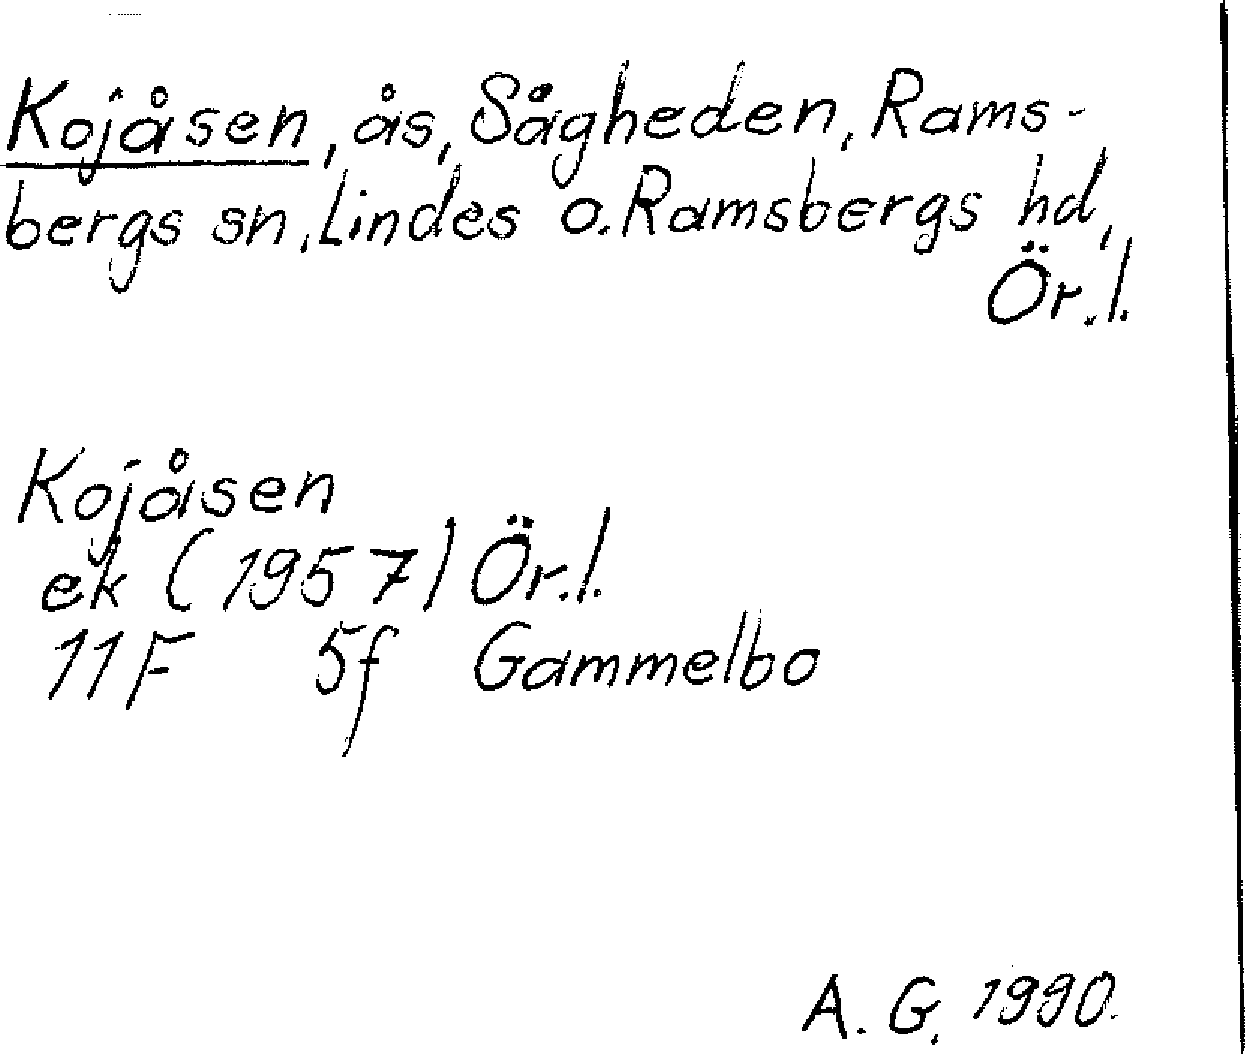 Kojåsen, ås, Sågheden, Rams-
bergs sn, Lindes o. Ramsbergs hd,
Ör. l.
Kojåsen
ek (1957) Ör. l.
11F 5f Gammelbo
A. G. 1990.